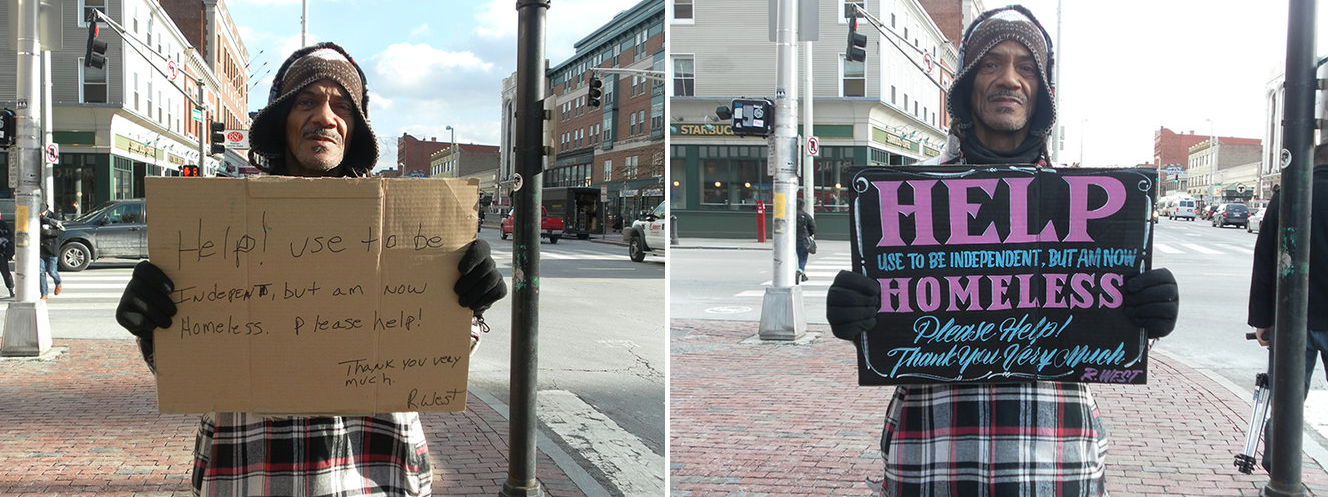 Help! use to be
Indepent, but am now
Homeless. Please help!
Thank you very
much.
R West
STARBUC
HELP
USE TO BE INDEPENDENT, BUT AM NOW
HOMELESS
Please Help!
Thank You Very Much
R. WEST